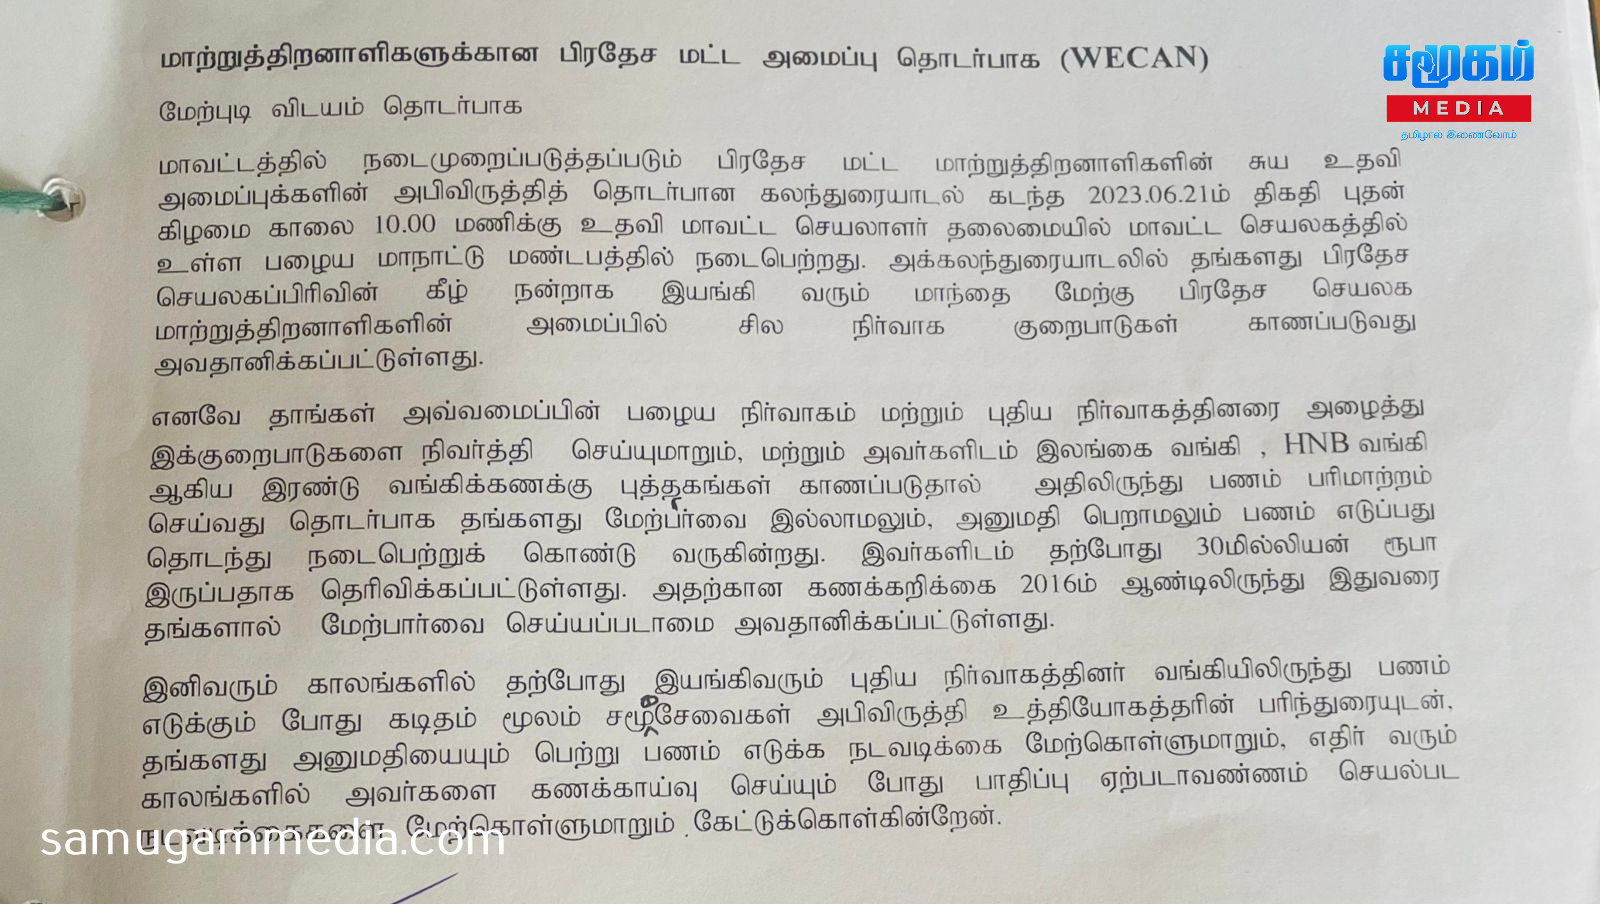 மாற்றுத்திறனாளிகளுக்கான பிரதேச மட்ட அமைப்பு தொடர்பாக (WECAN)
சமூகம்
MEDIA
தமிழால் இணைவோம்
மேற்படி விடயம் தொடர்பாக
மாவட்டத்தில் நடைமுறைப்படுத்தப்படும் பிரதேச மட்ட மாற்றுத்திறனாளிகளின் சுய உதவி
அமைப்புக்களின் அபிவிருத்தித் தொடர்பான கலந்துரையாடல் கடந்த 2023.06.21ம் திகதி புதன்
கிழமை காலை 10.00 மணிக்கு உதவி மாவட்ட செயலாளர் தலைமையில் மாவட்ட செயலகத்தில்
உள்ள பழைய மாநாட்டு மண்டபத்தில் நடைபெற்றது. அக்கலந்துரையாடலில் தங்களது பிரதேச
செயலகப்பிரிவின் கீழ் நன்றாக இயங்கி வரும் மாந்தை மேற்கு பிரதேச செயலக
மாற்றுத்திறனாளிகளின் அமைப்பில் சில நிர்வாக குறைபாடுகள் காணப்படுவது
அவதானிக்கப்பட்டுள்ளது.
எனவே தாங்கள் அவ்வமைப்பின் பழைய நிர்வாகம் மற்றும் புதிய நிர்வாகத்தினரை அழைத்து
இக்குறைபாடுகளை நிவர்த்தி செய்யுமாறும், மற்றும் அவர்களிடம் இலங்கை வங்கி , HNB வங்கி
ஆகிய இரண்டு வங்கிக்கணக்கு புத்தகங்கள் காணப்படுதால் அதிலிருந்து பணம் பரிமாற்றம்
செய்வது தொடர்பாக தங்களது மேற்பர்வை இல்லாமலும், அனுமதி பெறாமலும் பணம் எடுப்பது
தொடந்து நடைபெற்றுக் கொண்டு வருகின்றது. இவர்களிடம் தற்போது 30மில்லியன் ரூபா
இருப்பதாக தெரிவிக்கப்பட்டுள்ளது. அதற்கான கணக்கறிக்கை 2016ம் ஆண்டிலிருந்து இதுவரை
தங்களால் மேற்பார்வை செய்யப்படாமை அவதானிக்கப்பட்டுள்ளது.
இனிவரும் காலங்களில் தற்போது இயங்கிவரும் புதிய நிர்வாகத்தினர் வங்கியிலிருந்து பணம்
எடுக்கும் போது கடிதம் மூலம் சமூசேவைகள் அபிவிருத்தி உத்தியோகத்தரின் பரிந்துரையுடன்,
தங்களது அனுமதியையும் பெற்று பணம் எடுக்க நடவடிக்கை மேற்கொள்ளுமாறும், எதிர் வரும்
காலங்களில் அவர்களை கணக்காய்வு செய்யும் போது பாதிப்பு ஏற்படாவண்ணம் செயல்பட
நடவடிக்கைகளை மேற்கொள்ளுமாறும் கேட்டுக்கொள்கின்றேன்.
samugammedia.com